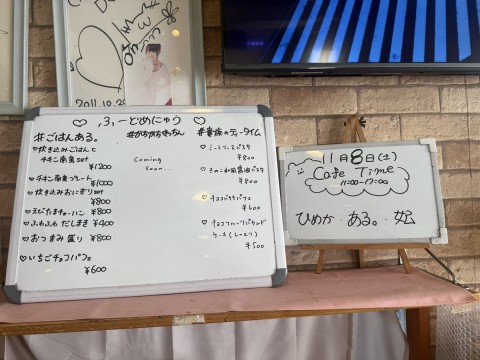 2011.10.20
♡ ふーどめにゅう ♡
#ごはんある。
♡炊き込みごはんと
チキン南蛮set
¥1200
♡チキン南蛮プレート
¥1000
♡炊き込みおにぎりset
¥800
♡えびたまチャーハン ¥800
♡ふわふわだしまき ¥400
♡おつまみ盛り ¥800
♡いちごチョコパフェ
¥600
Coming
soon...
#貴族のティータイム
♡ミートソースパスタ
¥800
♡きのこ和風醤油パスタ
¥800
♡チョコバナナパフェ
¥600
♡チョコフルーツパウンド
ケーキ(しっとり)
¥500
11月8日(土)
Cafe Time
11:00-17:00
ひめか ある。 妃